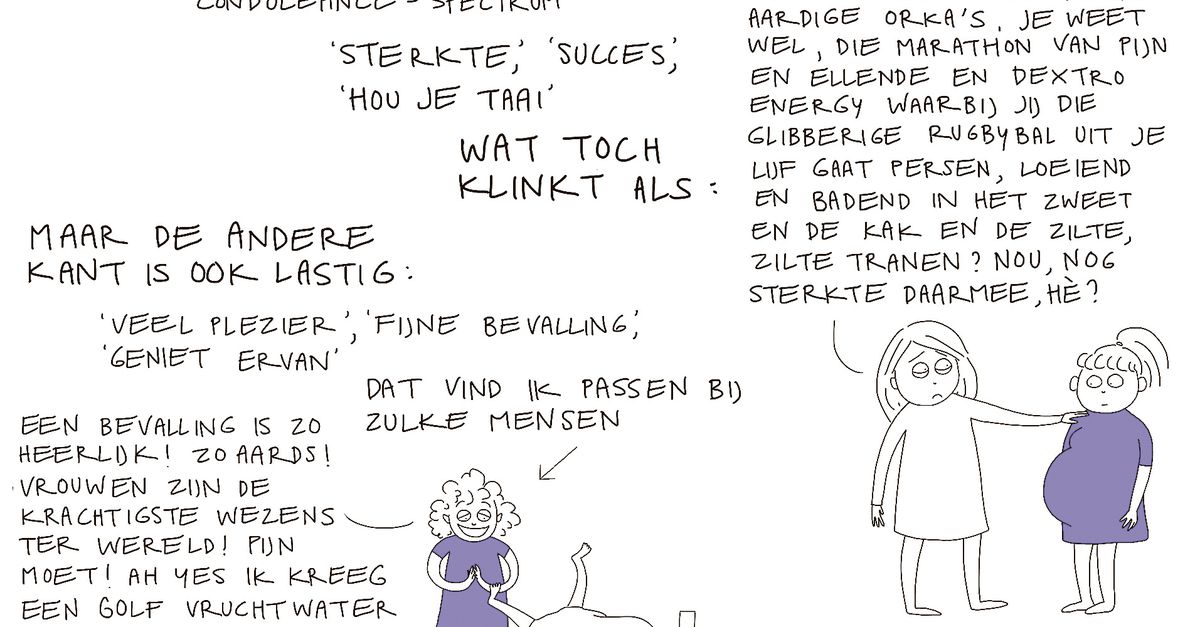 CONDOLEANCE - SPECTRUM
'STERKTE,' 'SUCCES,'
'HOU JE TAAI'
WAT TOCH
KLINKT ALS:
AARDIGE ORKA'S. JE WEET
WEL, DIE MARATHON VAN PIJN
EN ELLENDE EN DEXTRO
ENERGY WAARBIJ JIJ DIE
GLIBBERIGE RUGBYBAL UIT JE
LIJF GAAT PERSEN, LOEIEND
EN BADEND IN HET ZWEET
EN DE KAK EN DE ZILTE,
ZILTE TRANEN? NOU, NOG
STERKTE DAARMEE, HÈ?
MAAR DE ANDERE
KANT IS OOK LASTIG:
'VEEL PLEZIER', 'FIJNE BEVALLING,'
'GENIET ERVAN'
DAT VIND IK PASSEN BIJ
ZULKE MENSEN
EEN BEVALLING IS ZO
HEERLIJK! ZO AARDS!
VROUWEN ZIJN DE
KRACHTIGSTE WEZENS
TER WERELD! PIJN
MOET! AH YES IK KREEG
EEN GOLF VRUCHTWATER